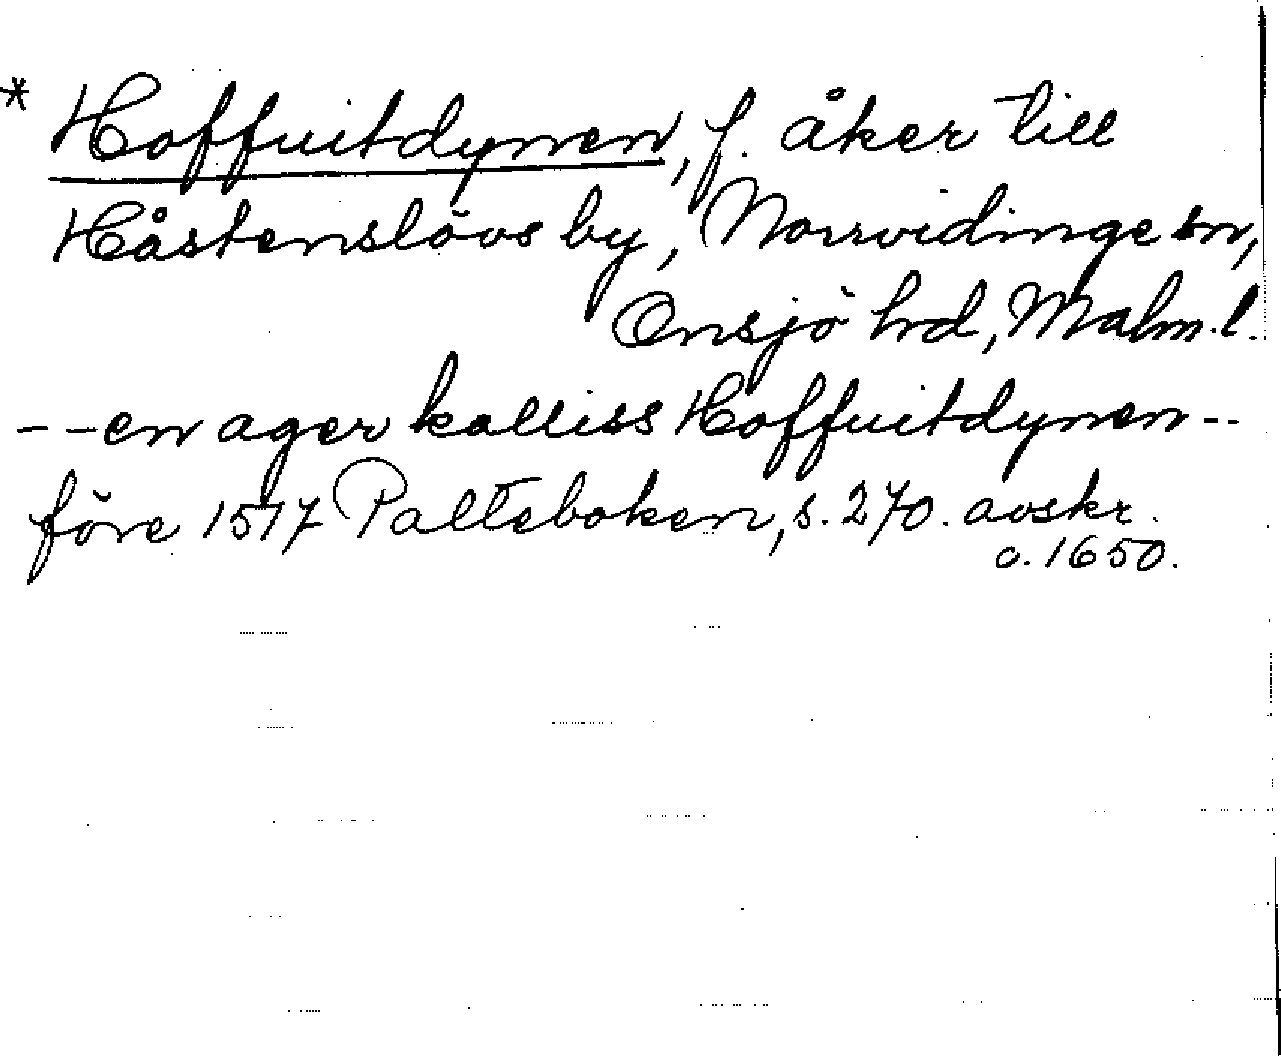 * Hoffuitdynen, f. åker till
Håstenslövs by, Norrvidinge sn,
Onsjö hd, Malm.l.
- - en ager kalliss Hoffuitdynen - -
före 1517 Palteboken, s. 270. avskr.
c. 1650.